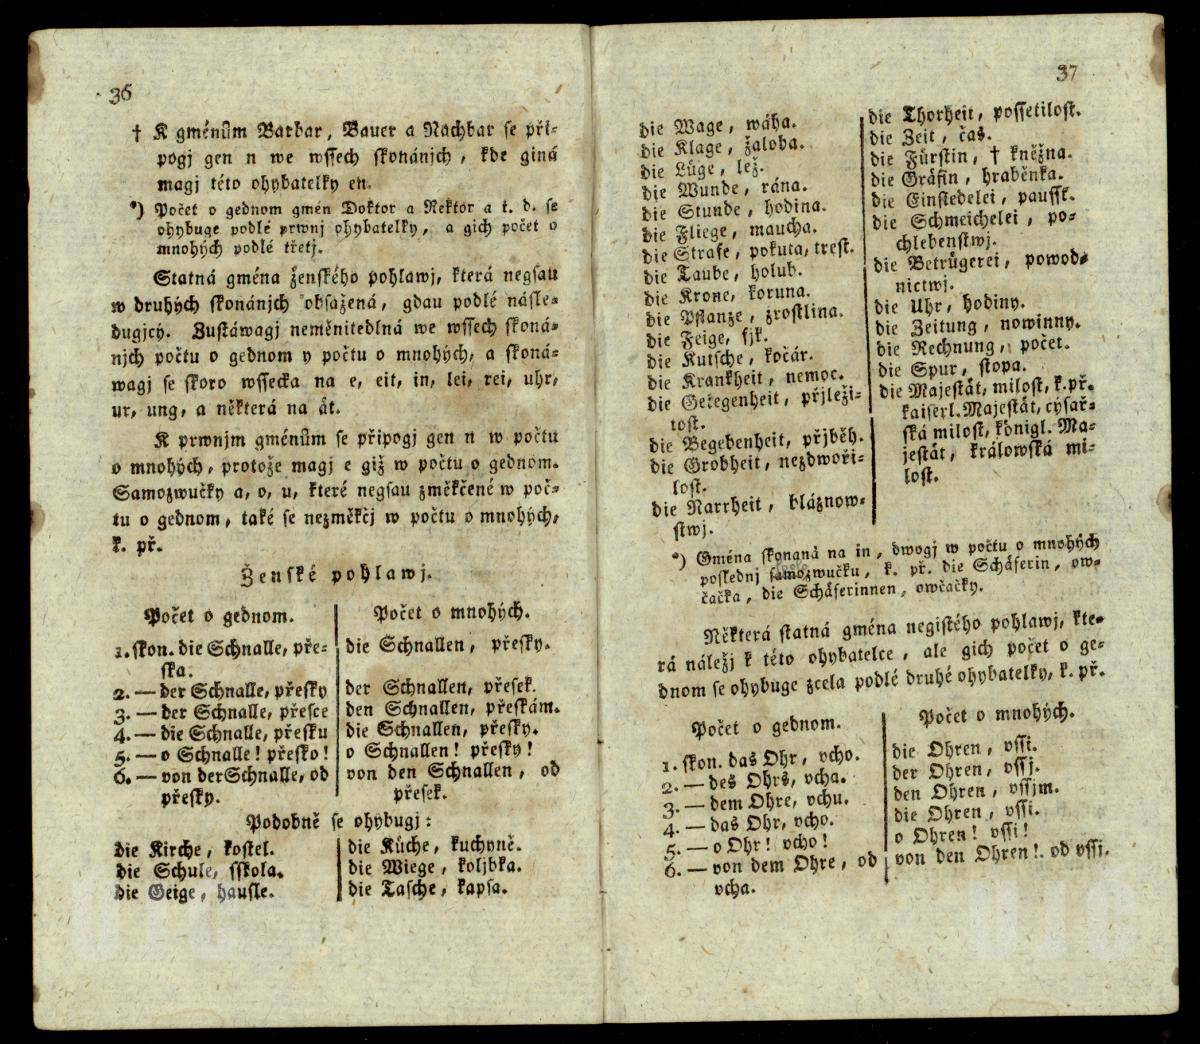 36
† K gménům Barbar, Bauer a Nachbar se při-
pogj gen n we wssech skonánjch, kde giná
magj této ohybatelky en.
*) Počet o gednom gmén Doktor a Rektor a t. d. se
ohybuge podlé prwnj ohybatelky, a gich počet o
mnohých podlé třetj.
Statná gména ženského pohlawj, která negsau
w druhých skonánjch obsažená, gdau podlé násle-
dugjcý. Zustáwagj neměnitedlná we wssech skoná-
njch počtu o gednom y počtu o mnohých, a skoná-
wagj se skoro wssecka na e, eit, in, lei, rei, uhr,
ur, ung, a některá na ät.
K prwnjm gménům se připogj gen n w počtu
o mnohých, protože magj e giž w počtu o gednom.
Samozwučky a, o, u, které negsau změkčené w poč-
tu o gednom, také se nezměkčj w počtu o mnohých,
k. př.
Ženské pohlawj.
Počet o gednom.
1. skon. die Schnalle, pře-
ska.
2. — der Schnalle, přesky
3. — der Schnalle, přesce
4. — die Schnalle, přesku
5. — o Schnalle! přesko!
6. — von der Schnalle, od
přesky.
Počet o mnohých.
die Schnallen, přesky.
der Schnallen, přesek.
den Schnallen, přeskám.
die Schnallen, přesky.
o Schnallen! přesky!
von den Schnallen, od
přesek.
Podobně se ohybugj:
die Kirche, kostel.
die Schule, sskola.
die Geige, hausle.
die Küche, kuchyně.
die Wiege, koljbka.
die Tasche, kapsa.
37
die Wage, wáha.
die Klage, žaloba.
die Lüge, lež.
die Wunde, rána.
die Stunde, hodina.
die Fliege, maucha.
die Strafe, pokuta, trest.
die Taube, holub.
die Krone, koruna.
die Pflanze, zrostlina.
die Feige, fjk.
die Kutsche, kočár.
die Krankheit, nemoc.
die Gelegenheit, přjleži-
tost.
die Begebenheit, přjběh.
die Grobheit, nezdwoři-
lost.
die Narrheit, bláznow-
stwj.
die Thorheit, possetilost.
die Zeit, čas.
die Fürstin, † kněžna.
die Gräfin, hraběnka.
die Einsiedelei, pausst.
die Schmeichelei, po-
chlebenstwj.
die Betrügerei, powod-
nictwj.
die Uhr, hodiny.
die Zeitung, nowinny.
die Rechnung, počet.
die Spur, stopa.
die Majestät, milost, k. př.
kaiserl. Majestät, cýsař-
ská milost, königl. Ma-
jestät, králowská mi-
lost.
*) Gména skonaná na in, dwogj w počtu o mnohých
poslednj samozwučku, k. př. die Schäferin, ow-
čačka, die Schäferinnen, owčačky.
Některá statná gména negistého pohlawj, kte-
rá náležj k této ohybatelce, ale gich počet o ge-
dnom se ohybuge zcela podlé druhé ohybatelky, k. př.
Počet o gednom.
1. skon. das Ohr, vcho.
2. — des Ohrs, vcha.
3. — dem Ohre, vchu.
4. — das Ohr, vcho.
5. — o Ohr! vcho!
6. — von dem Ohre, od
vcha.
Počet o mnohých.
die Ohren, vssi.
der Ohren, vssj.
den Ohren, vssjm.
die Ohren, vssi.
o Ohren! vssi!
von den Ohren!. od vssj.